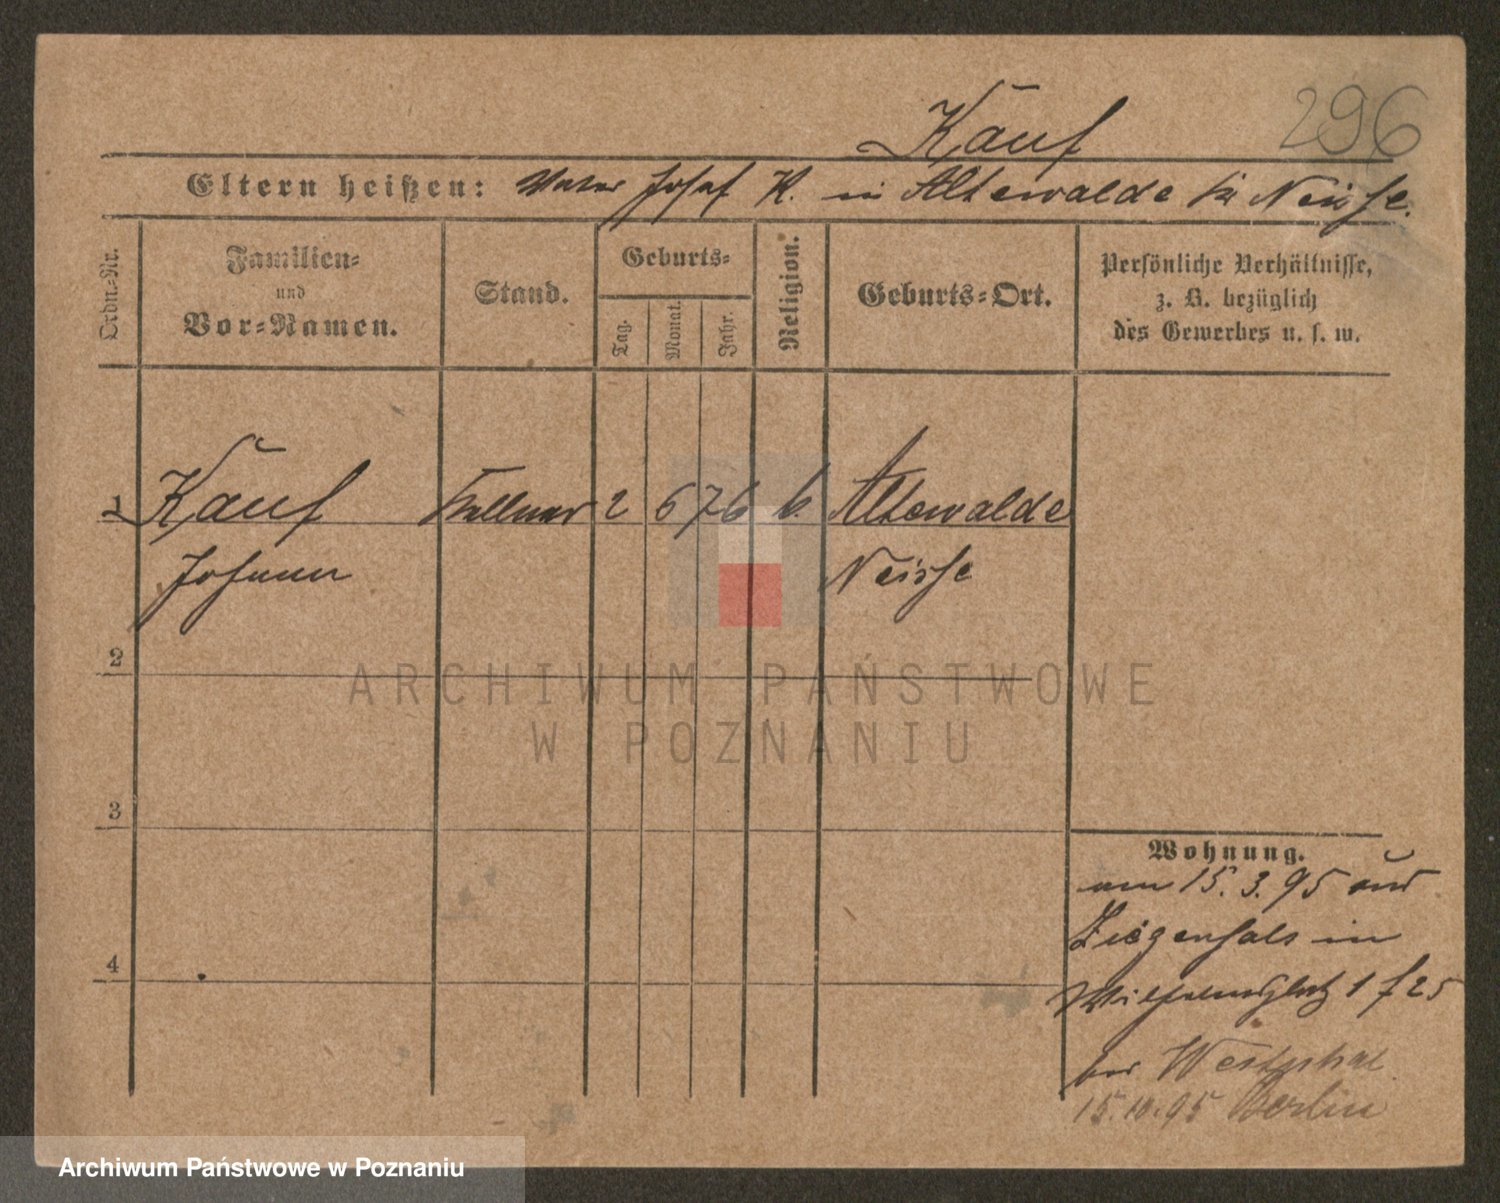 296
Kauf
Eltern heißen: Vater Josef K. in Altewalde bei Neisse.
Ordn.-Nr.
Familien-
und
Vor-Namen.
Stand.
Geburts-
Tag.
Monat.
Jahr.
Religion.
Geburts-Ort.
Persönliche Verhältnisse,
z. B. bezüglich
des Gewerbes u. s. w.
1 Kauf Kellner 2 6 76 k. Altewalde
Johann Neisse
2
3
4
Wohnung.
am 15.3.95 aus
Ziegenhals in
Wilhelmsplatz 1 f 25
bei Westphal
15.10.95 Berlin
ARCHIWUM PAŃSTWOWE
W POZNANIU
Archiwum Państwowe w Poznaniu